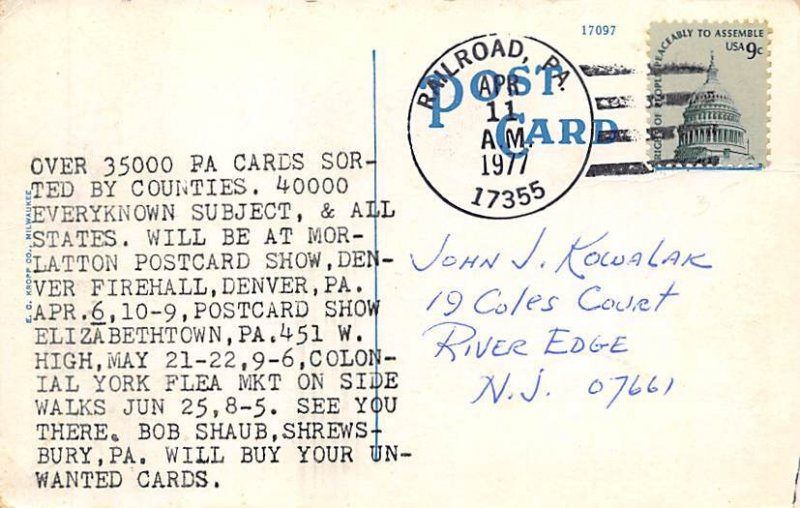 17097
POST
CARD
RAILROAD, PA.
APR
11
A.M.
1977
17355
PEACEABLY TO ASSEMBLE
USA 9c
OVER 35000 PA CARDS SOR-
TED BY COUNTIES. 40000
EVERYKNOWN SUBJECT, & ALL
STATES. WILL BE AT MOR-
LATTON POSTCARD SHOW,DEN-
VER FIREHALL,DENVER,PA.
APR.6,10-9,POSTCARD SHOW
ELIZABETHTOWN,PA.451 W.
HIGH,MAY 21-22,9-6,COLON-
IAL YORK FLEA MKT ON SIDE
WALKS JUN 25,8-5. SEE YOU
THERE. BOB SHAUB,SHREWS-
BURY,PA. WILL BUY YOUR UN-
WANTED CARDS.
E. C. KROPP CO., MILWAUKEE
John J. Kowalak
19 Coles Court
River Edge
N.J. 07661